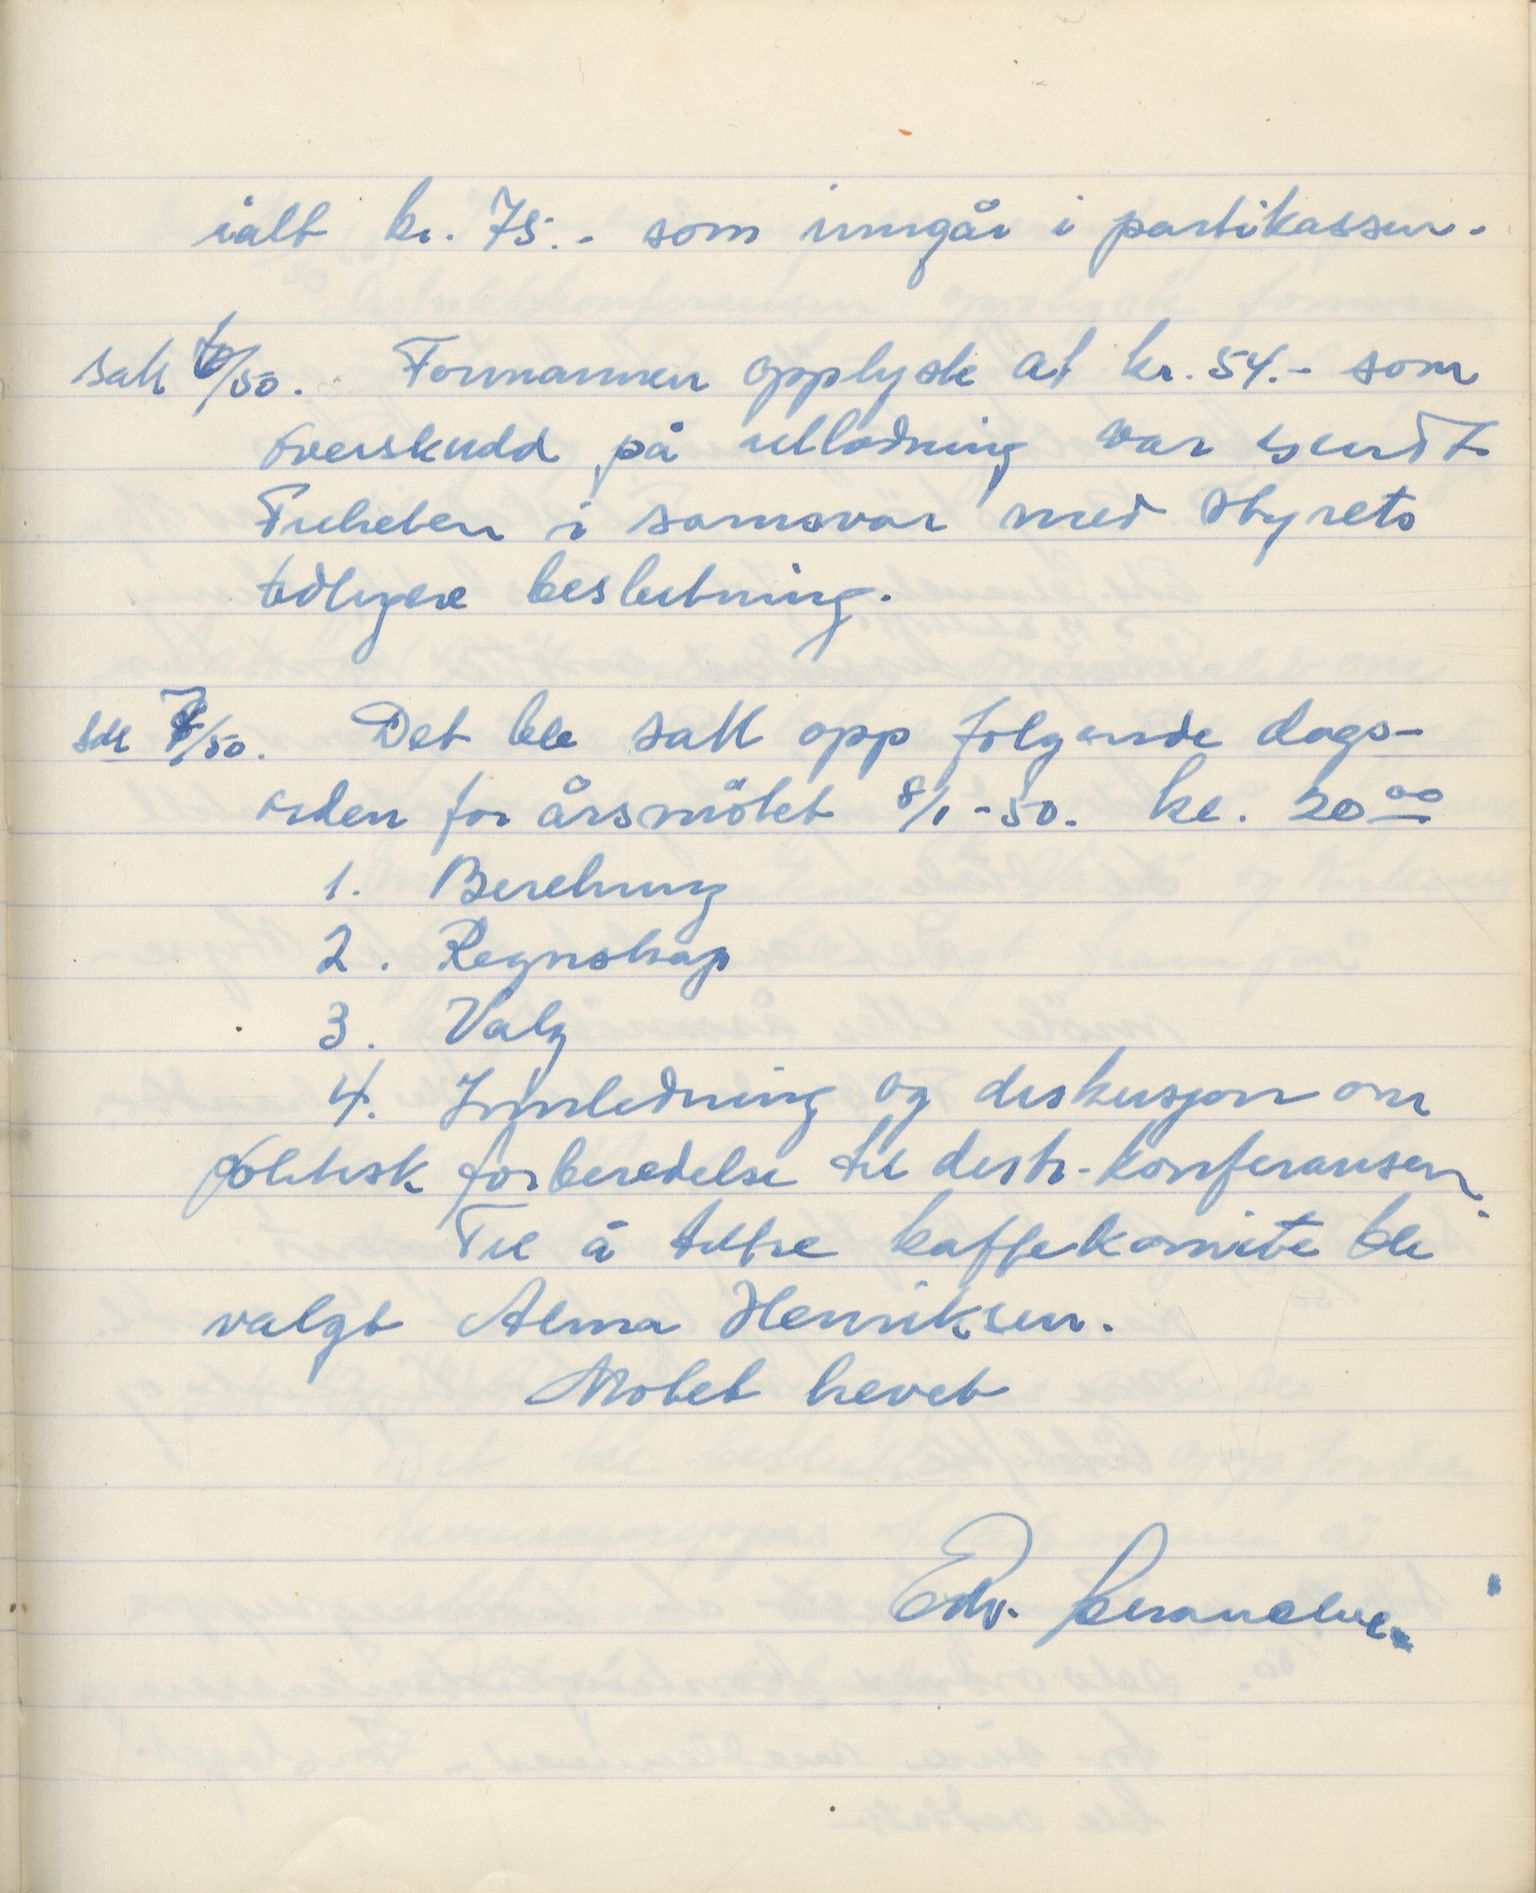 ialt kr. 75.- som inngår i partikassen.
Sak 6/50. Formannen opplyste at kr. 54.- som
overskudd på utlodning var sendt
Friheten i samsvar med styrets
tidligere beslutning.
Sak 7/50. Det ble satt opp følgende dags-
orden for årsmötet 8/1-50. kl. 20 00
1. Beretning
2. Regnskap
3. Valg
4. Innledning og diskusjon om
politisk forberedelse til distr.-konferansen.
Til å tiltre kaffekomite ble
valgt Alma Henriksen.
Møtet hevet
Edv.